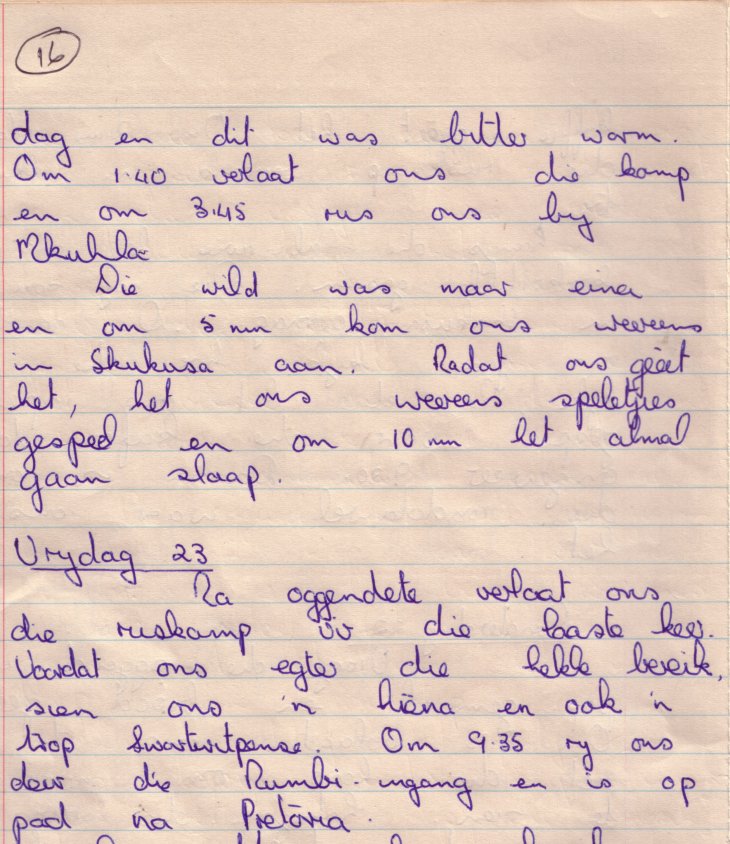 16
dag en dit was bitter warm.
Om 1.40 verlaat ons die kamp
en om 3.45 rus ons by
Mkuhla
Die wild was maar eina
en om 5 nm kom ons weereens
in Skukusa aan. Nadat ons geëet
het, het ons weereens speletjies
gespeel en om 10 nm het almal
gaan slaap.
Vrydag 23
Na oggendete verlaat ons
die ruskamp vir die laaste keer.
Voordat ons egter die hekke bereik,
sien ons 'n hiëna en ook 'n
trop Swartwitpense. Om 9.35 ry ons
deur die Numbi-ingang en is op
pad na Pretoria.